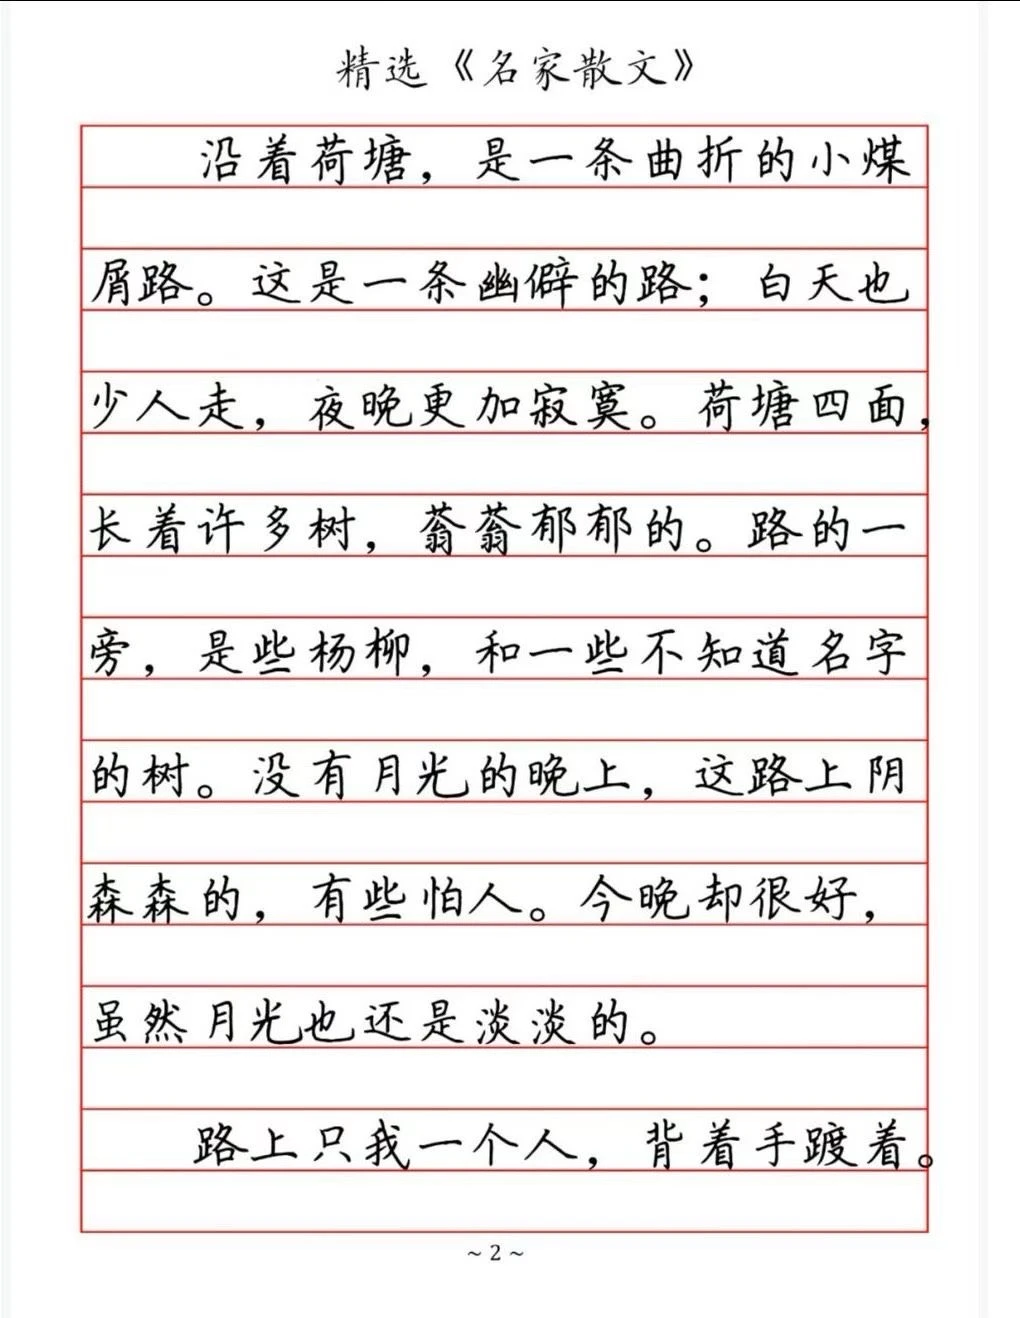 精选《名家散文》
沿着荷塘，是一条曲折的小煤
屑路。这是一条幽僻的路；白天也
少人走，夜晚更加寂寞。荷塘四面，
长着许多树，蓊蓊郁郁的。路的一
旁，是些杨柳，和一些不知道名字
的树。没有月光的晚上，这路上阴
森森的，有些怕人。今晚却很好，
虽然月光也还是淡淡的。
路上只我一个人，背着手踱着。
~ 2 ~